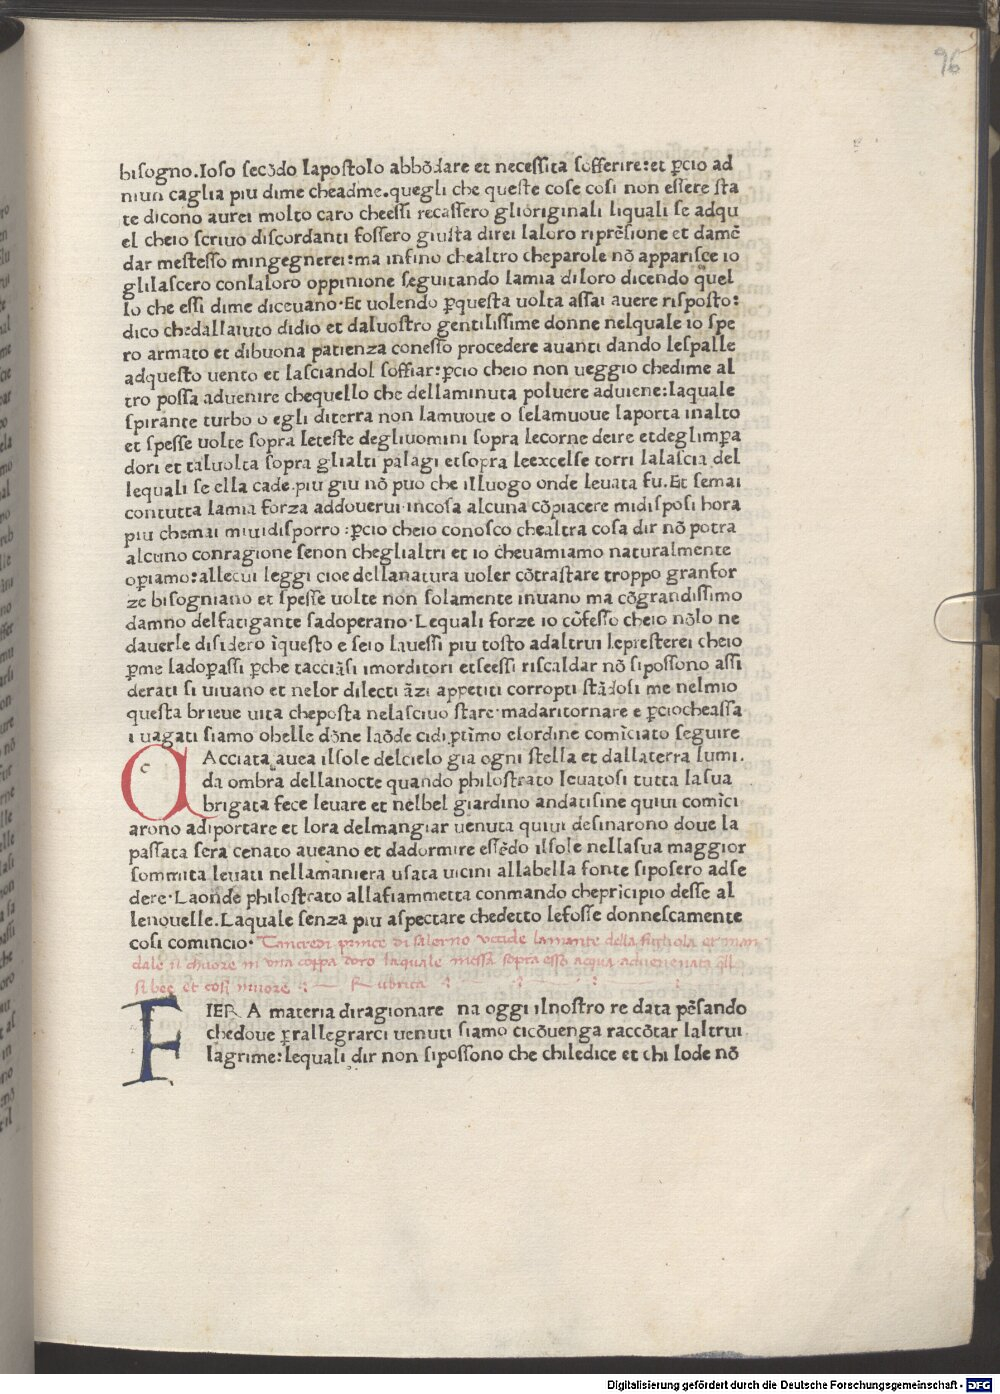 96
bisogno.Ioso secōdo lapostolo abbōdare et necessita sofferire:et ꝑcio ad
niun caglia piu dime cheadme.quegli che queste cose cosi non essere sta
te dicono aurei molto caro cheessi recassero glioriginali liquali se adqu
el cheio scriuo discordanti fossero giusta direi laloro riprēsione et damē
dar mestesso mingegnerei:ma infino chealtro cheparole nō apparisce io
glilascero conlaloro oppinione seguitando lamia diloro dicendo q̄uel
lo che essi dime diceuano.Et uolendo ꝑquesta uolta assai auere risposto:
dico chedallaiuto didio et daluostro gentilissime donne nelquale io spe
ro armato et dibuona patienza conesso procedere auanti dando lespalle
adquesto uento et lasciandol soffiar:ꝑcio cheio non ueggio chedime al
tro possa aduenire chequello che dellaminuta poluere aduiene:laquale
spirante turbo o egli diterra non lamuoue o selamuoue laporta inalto
et spesse uolte sopra leteste degliuomini sopra lecorne deire etdeglimꝑa
dori et taluolta sopra glialti palagi etsopra leexcelse torri lalascia del
lequali se ella cade.piu giu nō puo che illuogo onde leuata fu.Et semai
contutta lamia forza addouerui incosa alcuna cōpiacere midisposi hora
piu chemai miuidisporro :ꝑcio cheio conosco chealtra cosa dir nō potra
alcuno conragione senon cheglialtri et io cheuamiamo naturalmente
oꝑiamo:allecui leggi cioe dellanatura uoler cōtrastare troppo granfor
ze bisogniano et spesse uolte non solamente inuano ma cōgrandissimo
damno delfatigante sadoperano.Lequali forze io cōfesso cheio nōlo ne
dauerle disidero īquesto e seio lauessi piu tosto adaltrui lepresterei cheio
ꝑme ladoꝑassi ꝑche tacciāsi imorditori etseessi riscaldar nō sipossono assi
derati si uiuano et nelor dilecti āzi appetiti corropti stādosi me nelmio
questa brieue uita cheposta nelasciuo stare.madaritornare e ꝑciocheassa
i uagati siamo obelle dōne laōde cidiꝑtimo elordine comīciato seguire
c Acciata auea ilsole delcielo gia ogni stella et dallaterra lumi.
da ombra dellanocte quando philostrato leuatosi tutta lasua
brigata fece leuare et nelbel giardino andatisine quiui comīci
arono adiportare et lora delmangiar uenuta quiui desinarono doue la
passata sera cenato aueano et dadormire essēdo ilsole nellasua maggior
sommita leuati nellamaniera usata uicini allabella fonte siposero adse
dere.Laonde philostrato allafiammetta conmando cheprīcipio desse al
lenouelle.Laquale senza piu aspectare chedetto lefosse donnescamente
cosi comincio. Tancredi prince di salerno vccide lamante della figliola et man
dale il chuore in vna coppa doro laquale messa sopra esso acqua aduenenata q̄lla
si bee et cosi muore :— Rubrica
F IERA materia diragionare na oggi ilnostro re data pēsando
chedoue ꝑrallegrarci uenuti siamo cicōuenga raccōtar laltrui
lagrime:lequali dir non sipossono che chiledice et chi lode nō
Digitalisierung gefördert durch die Deutsche Forschungsgemeinschaft - DFG